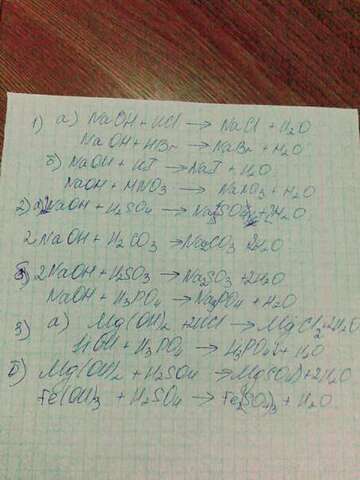 1) а) NaOH + HCl → NaCl + H₂O
NaOH + HBr → NaBr + H₂O
б) NaOH + HJ → NaJ + H₂O
NaOH + HNO₃ → NaNO₃ + H₂O
2) а) 2NaOH + H₂SO₄ → Na₂SO₄ + 2H₂O
2NaOH + H₂CO₃ → Na₂CO₃ 2H₂O
б) 2NaOH + H₂SO₃ → Na₂SO₃ + 2H₂O
NaOH + H₃PO₄ → Na₃PO₄ + H₂O
3) а) Mg(OH)₂ + 2HCl → MgCl₂ + 2H₂O
+ H₃PO₄ → + H₂O
б) Mg(OH)₂ + H₂SO₄ → + 2H₂O
Fe(OH)₃ + H₂SO₄ → Fe₂(SO₄)₃ + H₂O